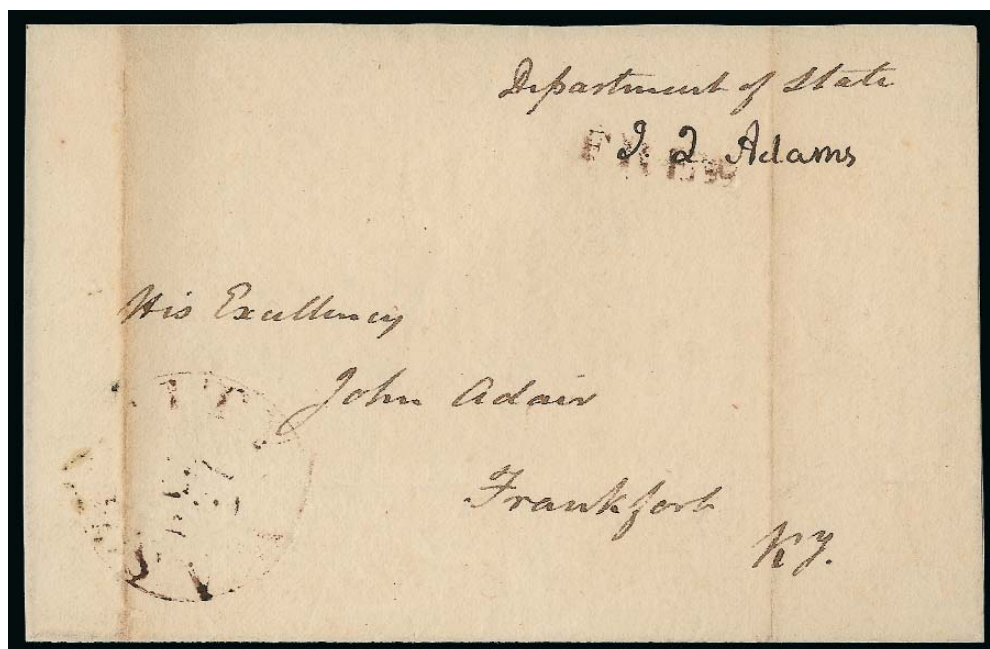 Department of State
J Q Adams
FREE
His Excellency
John Adair
Frankfort
Ky.